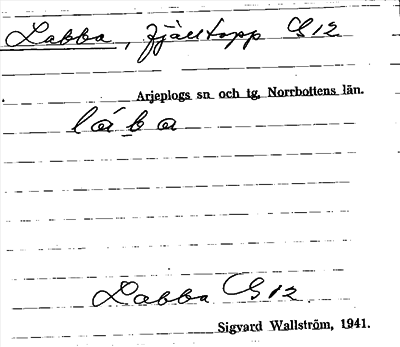 Labba, fjälltopp G12
Arjeplogs sn och tg, Norrbottens län.
láb̲a
Labba G12
Sigvard Wallström, 1941.